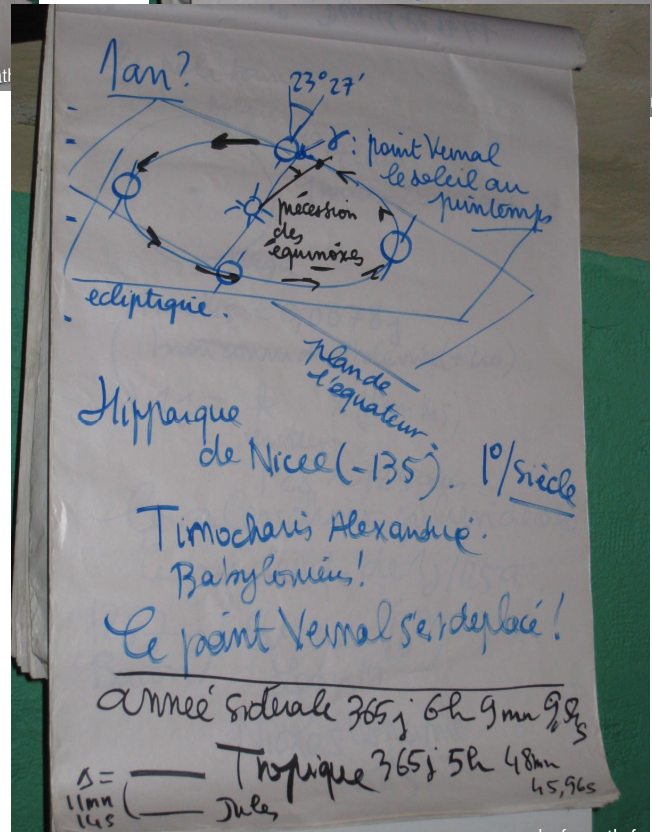 1 an?
23° 27'
γ : point Vernal
le soleil au
printemps
précession
des
équinoxes
ecliptique.
plan de
l'équateur.
Hipparque
de Nicée (-135). 1°/siècle
Timocharis Alexandrie.
Babyloniens!
Le point Vernal s'est déplacé!
année sidérale 365j 6h 9mn 9,5s
Tropique 365j 5h 48mn
45,96s
Δ =
11mn
14s
Jules